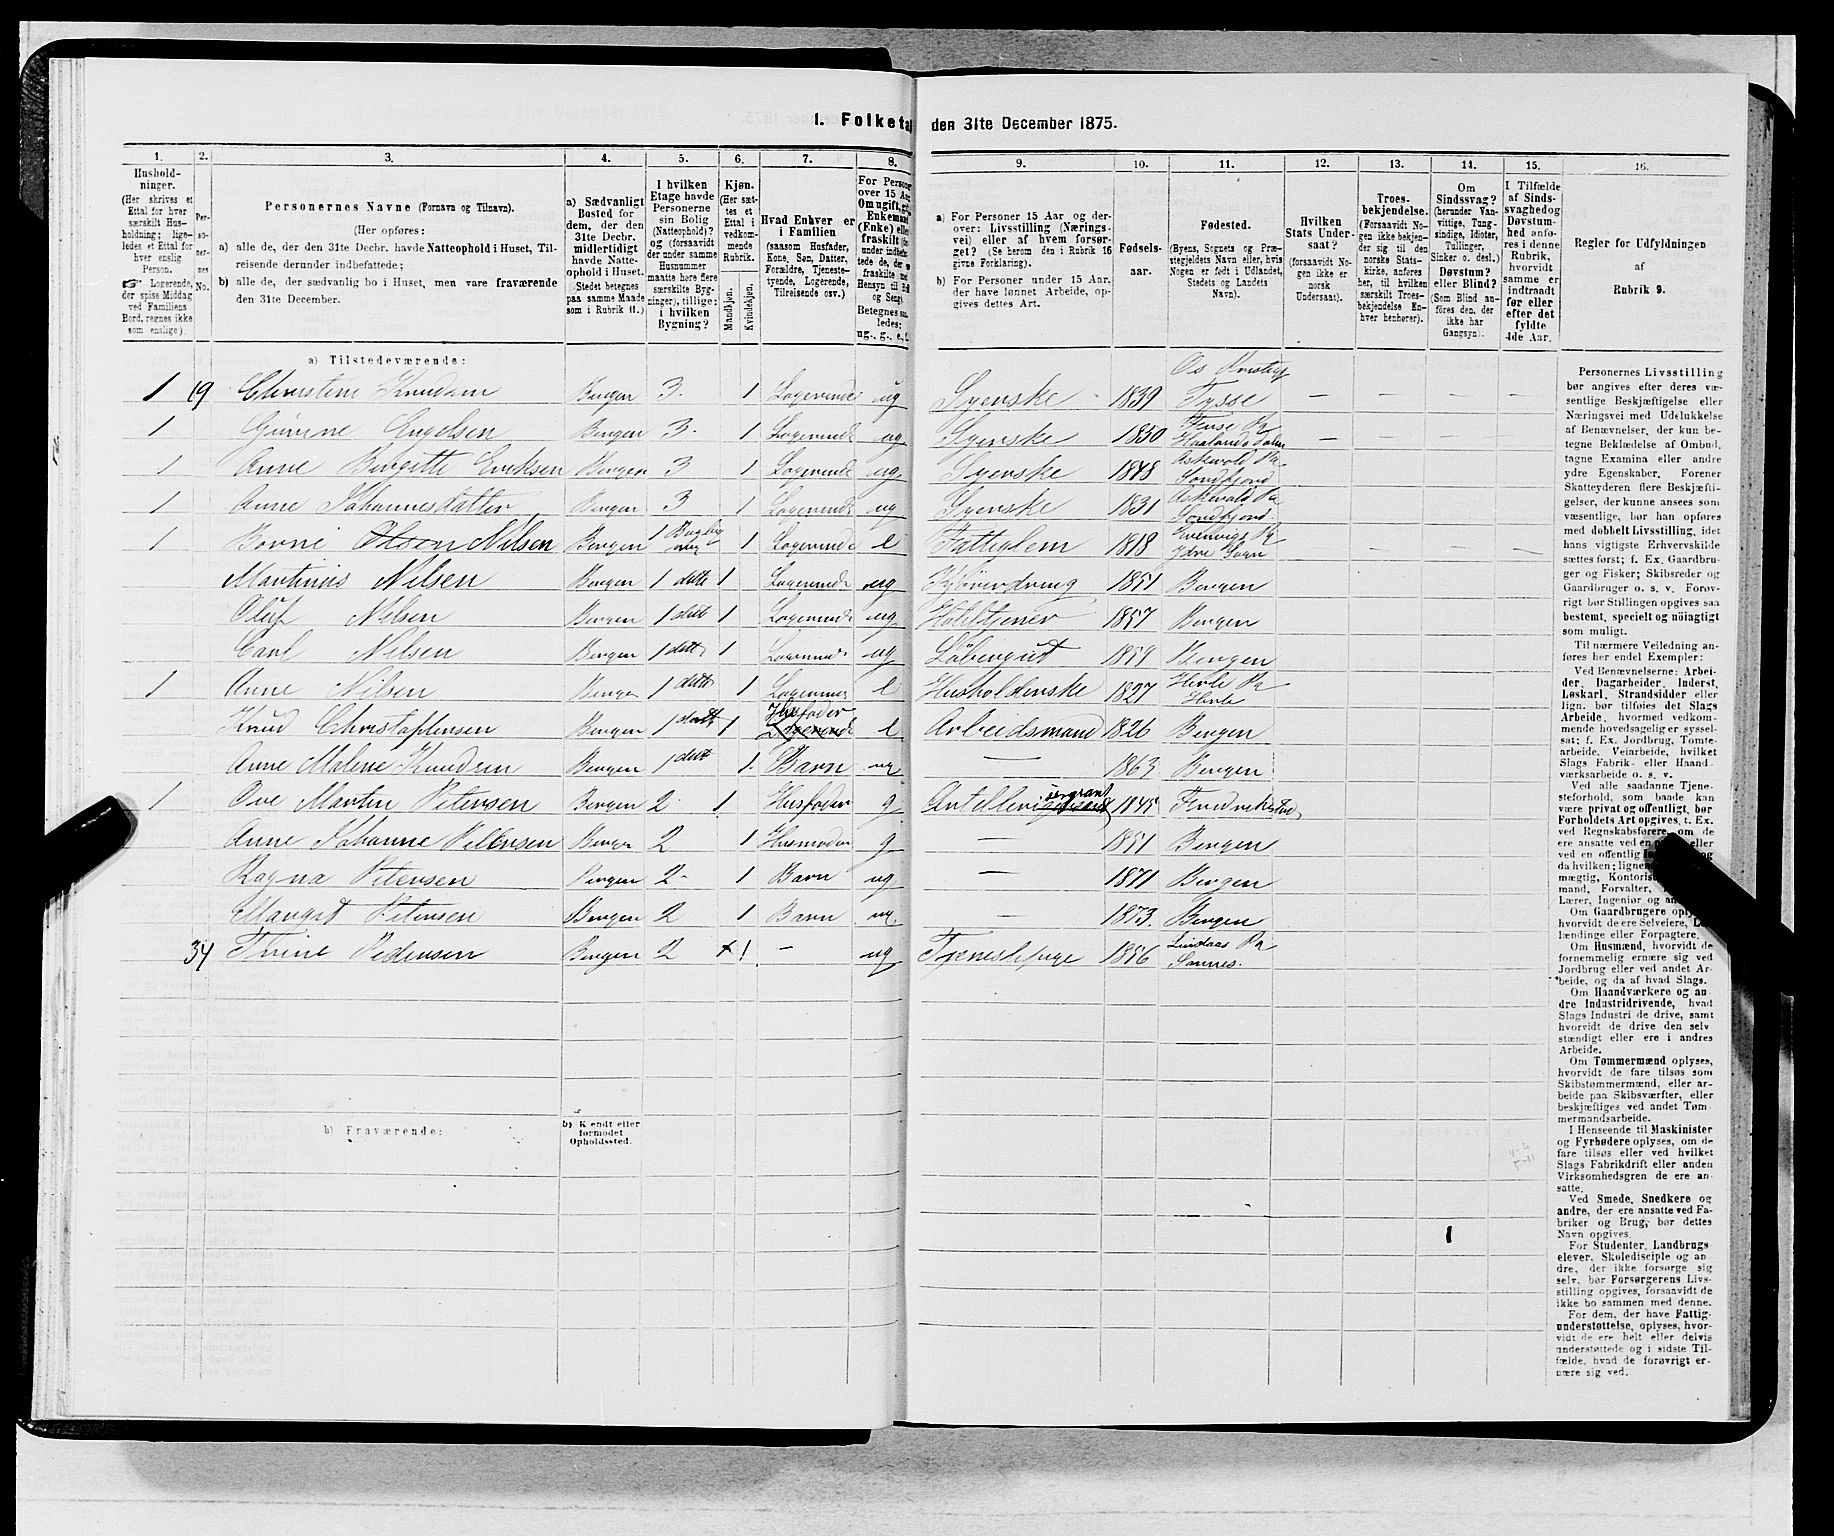 1. Folketal den 31te December 1875.
1. 2. 3. 4. 5. 6. 7. 8. 9. 10. 11. 12. 13. 14. 15. 16.
Hushold-
ninger.
(Her skrives et
Ettal for hver
særskilt Hus-
holdning; lige-
ledes et Ettal for
hver enslig
Person.
☞ Logerende,
der spise Middag
ved Familiens
Bord, regnes ikke
som enslige).
Per-
so-
ner-
nes
No.
Personernes Navne (Fornavn og Tilnavn).
(Her opføres:
a) alle de, der den 31te Decbr. havde Natteophold i Huset, Til-
reisende derunder indbefattede;
b) alle de, der sædvanlig bo i Huset, men vare fraværende
den 31te December.
a) Sædvanligt
Bosted for
dem, der den
31te Decbr.
midlertidigt
havde Natte-
ophold i Huset.
Stedet betegnes
paa samme Maade
som i Rubrik 11.)
I hvilken
Etage havde
Personerne
sin Bolig
(Natteophold)?
og (forsaavidt
der under samme
Husnummer
maatte høre flere
særskilte Byg-
ninger), tillige:
i hvilken
Bygning?
Kjøn.
(Her sæt-
tes et
Ettal i
vedkom-
mende
Rubrik.
Mandkjøn.
Kvindekjøn.
Hvad Enhver er
i Familien
(saasom Husfader,
Kone, Søn, Datter,
Forældre, Tjeneste-
tyende, Logerende,
Tilreisende osv.)
For Person
over 15 Aar
Om ugift, g
Enkemand
(Enke) elle
fraskilt
Betegnes saa-
ledes:
ug., g., e., f.
a) For Personer 15 Aar og der-
over: Livsstilling (Nærings-
vei) eller af hvem forsør-
get? (Se herom den i Rubrik 16
givne Forklaring).
b) For Personer under 15 Aar,
der have lønnet Arbeide, op-
gives dettes Art.
Fødsels-
aar.
Fødested.
(Byens, Sognets og Præ-
stegjeldets Navn eller, hvis
Nogen er født i Udlandet,
Stedets og Landets
Navn).
Hvilken
Stats Under-
saat?
(forsaavidt No-
gen ikke er
norsk
Undersaat).
Troes-
bekjendelse.
(Forsaavidt No-
gen ikke bekjen-
der sig til den
norske Stats-
kirke, anføres
her, til hvilken
særskilt Troes-
bekjendelse En-
hver henhører).
Om
Sindssvag?
(herunder Van-
vittige, Tung-
sindige, Idioter,
Tullinger,
Sinker o. desl.)
Døvstum?
eller Blind?
(Som Blind an-
føres den, der
ikke har
Gangsyn).
I Tilfælde
af Sinds-
svaghed og
Døvstum-
hed anfø-
res i denne
Rubrik,
hvorvidt
samme er
indtraadt
før eller
efter det
fyldte
4de Aar.
Regler for Udfyldningen
af
Rubrik 9.
a) Tilstedeværende:
1 19 Christine Knudsen Bergen 3. 1 Logerende ug Syerske 1839 Os Tysse
1 Gurine Engelsen Bergen 3. 1 Logerende ug Syerske 1850
1 Anne Birgitte Eriksen Bergen 3 1 Logerende ug Syerske 1848 Askevold Pr Søndfjord
1 Anne Johannesdatter Bergen 3 1 Logerende ug Syerske 1831 Askevold Pr Søndfjord
1 Nilsen Bergen 1 1 Logerende e Fattiglem 1818 Evenvigs Pr Ydre Sogn
Martinius Nilsen Bergen 1 dette 1 Logerende ug 1851 Bergen
Oluf Nilsen Bergen 1 dett 1 Logerende ug 1857 Bergen
Carl Nilsen Bergen 1 dette 1 Logerende ug Løbergut 1859 Bergen
1 Anne Nilsen Bergen 1 dette 1 e Husholderske 1827
Knud Christophersen Bergen 1 dett 1 Husfader Logerende e Arbeidsmand 1826 Bergen
Anne Malene Knudsen Bergen 1 dett 1 Barn ug — 1863 Bergen
1 Ove Martin Petersen Bergen 2 1 Husfader g 1845
Anne Johanne Petersen Bergen 2 1 Husmoder g — 1851 Bergen
Ragna Petersen Bergen 2 1 Barn ug — 1871 Bergen
Margit Petersen Bergen 2 1 Barn ug — 1873. Bergen
34 Trine Pedersen Bergen 2 1 — ug Tjenestepige 1856 Lindaas Pr
b) Fraværende:
b) Kjendt eller
formodet
Opholdssted.
1
Personernes Livsstilling
bør angives efter deres væ-
sentlige Beskjæftigelse eller
Næringsvei med Udelukkelse
af Benævnelser, der kun be-
tegne Beklædelse af Ombud,
tagne Examina eller andre
ydre Egenskaber. Forener
Skatteyderen flere Beskjæfti-
gelser, der kunne ansees som
væsentlige, bør han opføres
med dobbelt Livsstilling, idet
hans vigtigste Erhvervskilde
sættes først; f. Ex. Gaardbru-
ger og Fisker; Skibsreder og
Gaardbruger o. s. v. Forøv-
rigt bør Stillingen opgives saa
bestemt, specielt og nøiagtigt
som muligt.
Til nærmere Veiledning an-
føres her endel Exempler:
Ved Benævnelserne: Arbei-
der, Dagarbeider, Inderst,
Løskarl, Strandsidder eller
lign. bør tilføies det Slags
Arbeide, hvormed vedkom-
mende hovedsagelig er syssel-
sat; f. Ex. Jordbrug, Tomte-
arbeide, Veiarbeide, hvilket
Slags Fabrik- eller Haand-
værksarbeide o. s. v.
Ved alle saadanne Tjene-
steforhold, som baade kan
være privat og offentligt, bør
Forholdets Art opgives, t. Ex.
ved Regnskabsførere, om de
ere ansatte ved en eller
ved en offentlig og
da hvilken;
mægtig, Kontorist
mand, Forvalter,
Lærer, Ingeniør og
Om Gaardbrugere oply
hvorvidt de ere Selveiere, L
lændinge eller Forpagtere.
Om Husmænd, hvorvidt de
fornemmelig ernære sig ved
Jordbrug eller ved andet Ar-
beide, og da af hvad Slags.
Om Haandværkere og an-
dre Industridrivende, hvad
Slags Industri de drive, samt
hvorvidt de drive den selv-
stændigt eller ere i andres
Arbeide.
Om Tømmermænd oplyses,
hvorvidt de fare tilsøs som
Skibstømmermænd, eller ar-
beide paa Skibsværfter, eller
beskjæftiges ved andet Tøm-
mermandsarbeide.
I Henseende til Maskinister
og Fyrbødere oplyses, om de
fare tilsøs eller ved hvilket
Slags Fabrikdrift eller anden
Virksomhedsgren de ere an-
satte.
Ved Smede, Snedkere og
andre, der ere ansatte ved Fa-
briker og Brug, bør dettes
Navn opgives.
For Studenter, Landbrugs-
elever, Skoledisciple og an-
dre, der ikke forsørge sig
selv, bør Forsørgerens Livs-
stilling opgives, forsaavidt de
ikke bo sammen med denne.
For dem, der have Fattig-
understøttelse, oplyses, hvor-
vidt de ere helt eller delvis
understøttede og i sidste Til-
fælde, hvad de forøvrigt er-
nære sig ved.